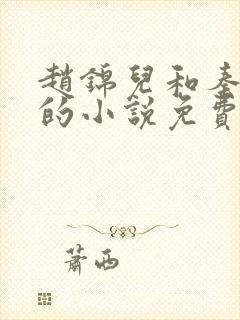 趙錦兒和秦
的小說免費
蕭西